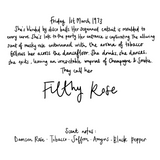 Friday 1st March 1973
She's blinded by disco balls. Her sequinned catsuit is moulded to
every curve. She's late to the party. Her entrance is captivating the alluring
scent of musky rose entwined with the aroma of tobacco
follows her across the dancefloor. She drinks, she dances,
she spills, leaving an unmistakable imprint of Champagne & Smoke.
They call her
Filthy Rose
Scent notes:
Damson Rose · Tobacco · Saffron · Amyris · Black Pepper